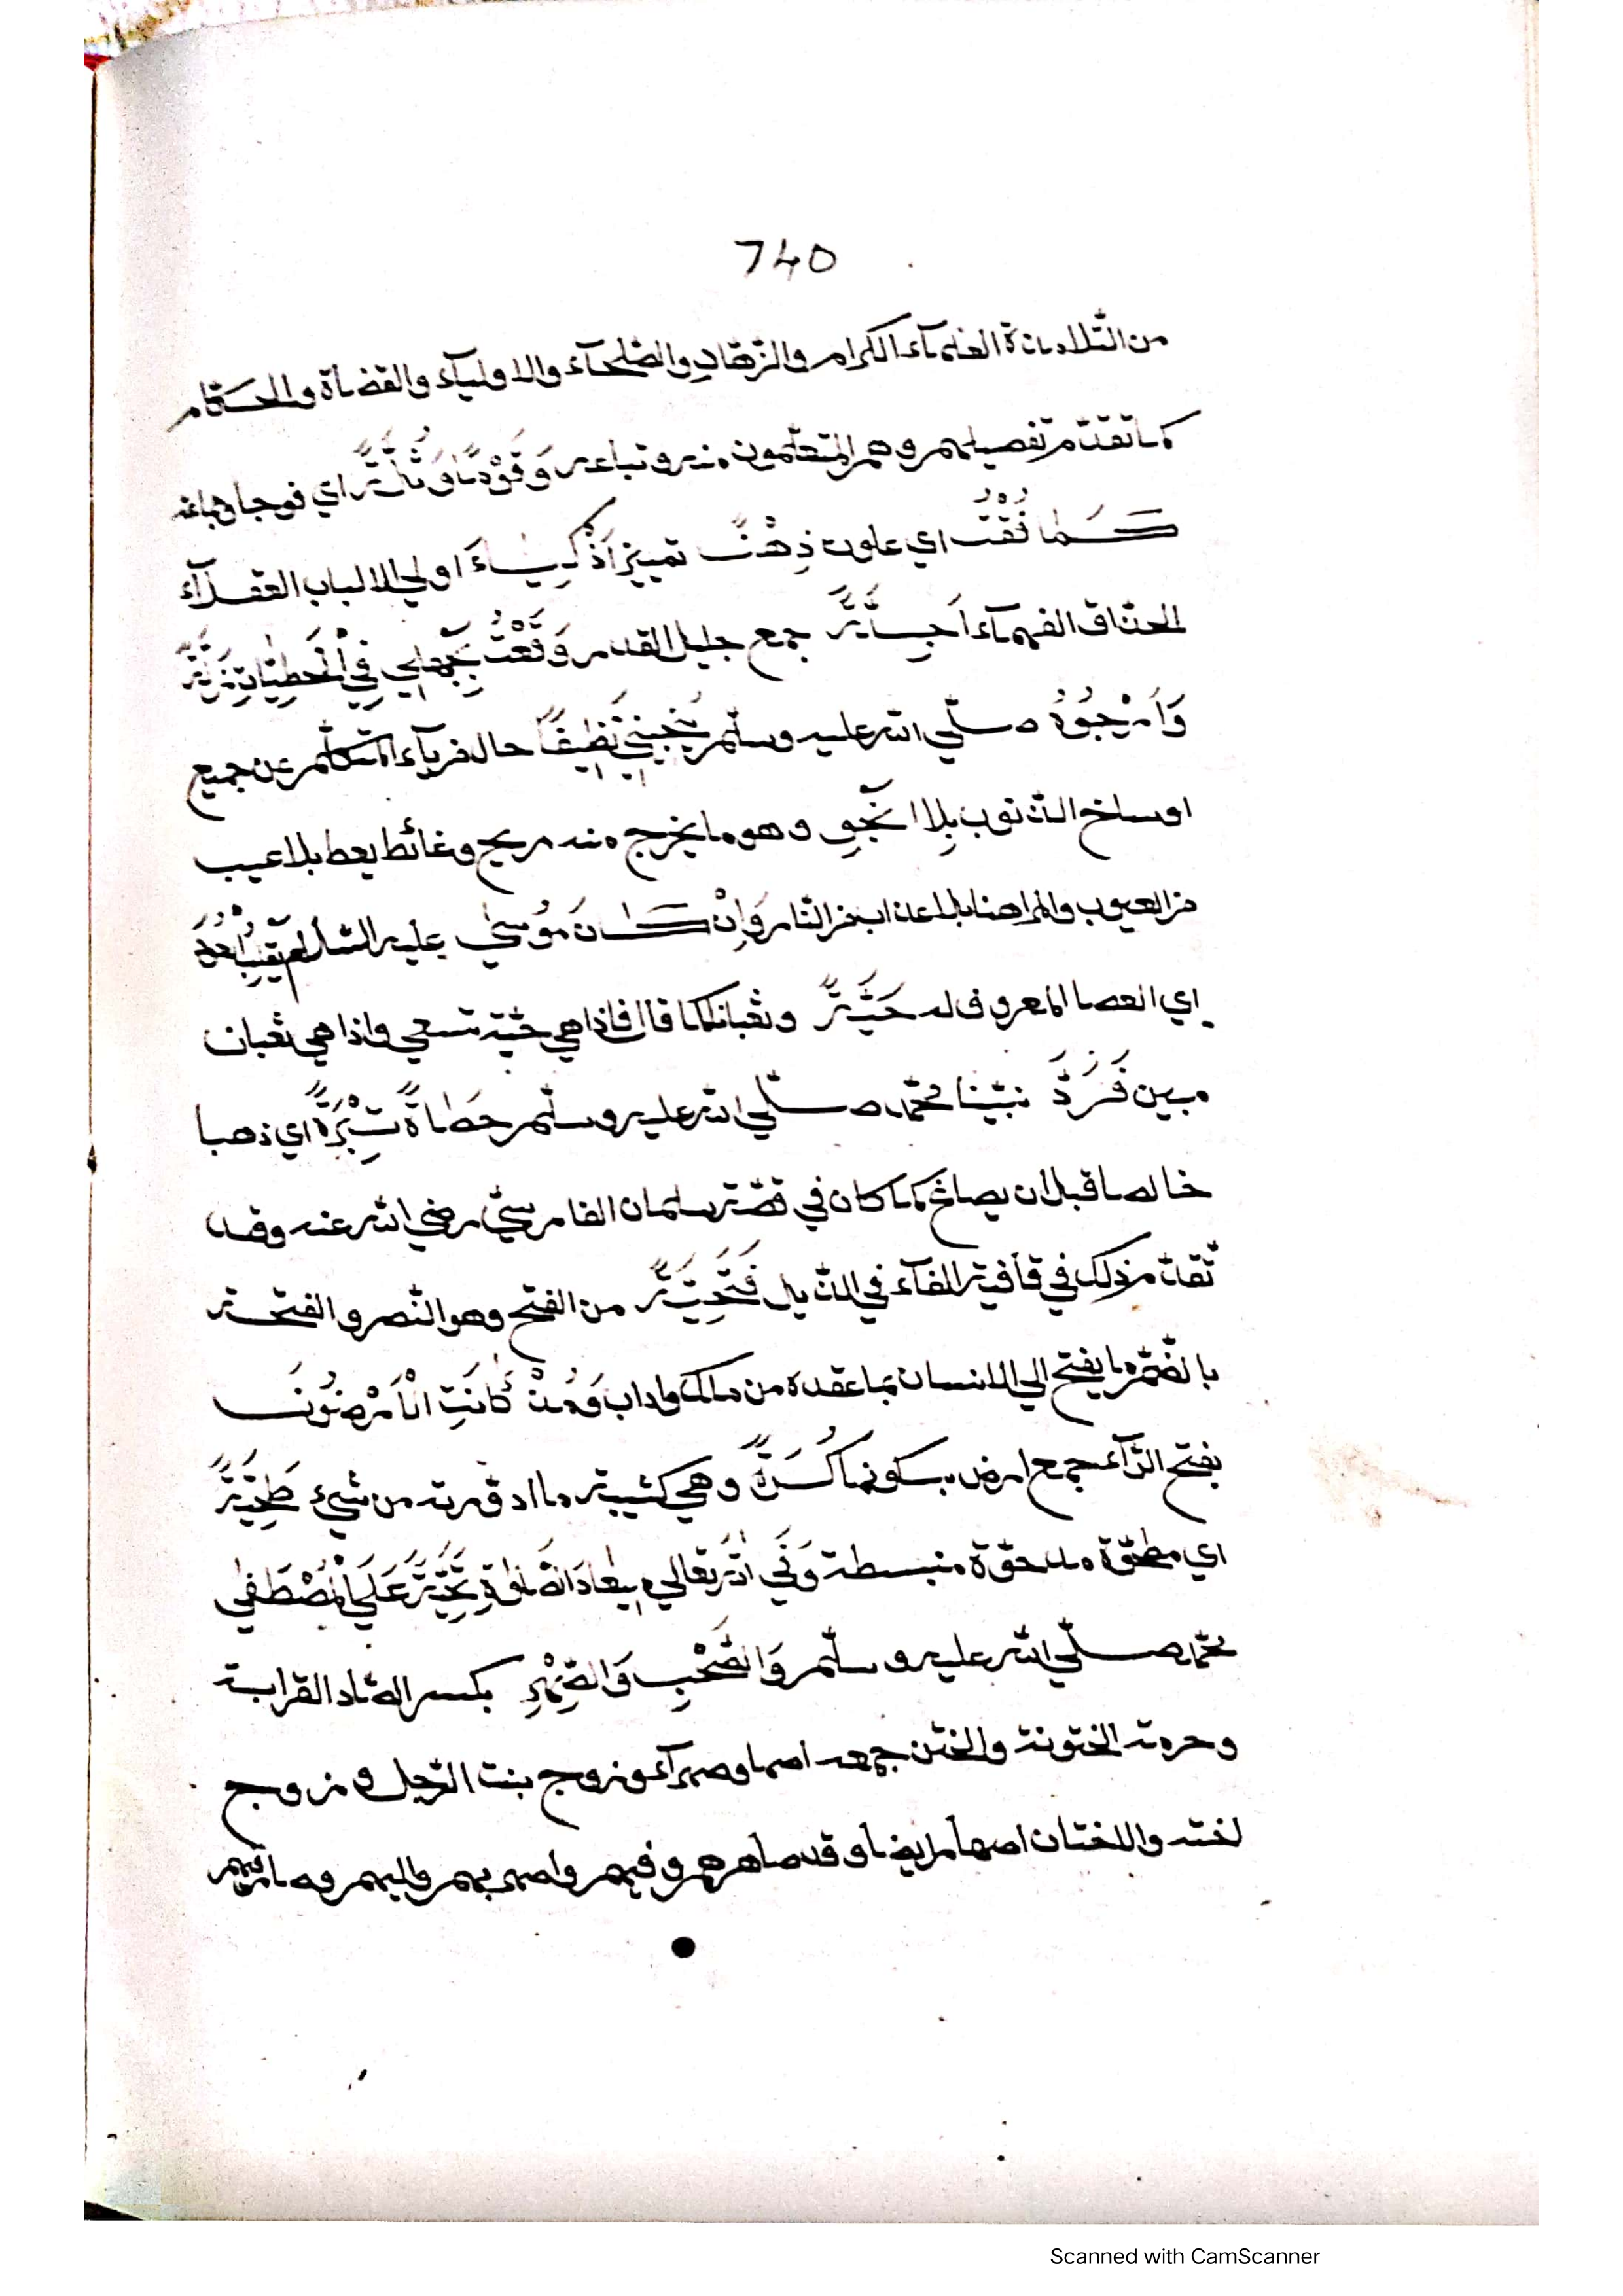 740
من التلامذة العلمآء الكرام والزهاد والصلحآء والاوليآء والقضاة والحكام
كما تقدم تفصيلهم وهم المتعلمون منه وتباعه وَقَوْمًا وَثُلَّةً اي فوجا وجماعة
كَمَا فُقْتُ اي علوت ذِهْنًا تمييز اَذْكِيَآءَ اولي الالباب العقلآء
الحذاق الفهمآء اَجِلَّةً جمع جليل القدر وَقَعْتُ بِجَهْلِي فِي الْخَطِيَّاتِ زَلَّةً
وَاَرْجُوهُ صلّي الله عليه وسلّم يُنْجِينِي نَظِيفًا حال من يآء المتكلّم عن جميع
اوساخ الذنوب بِلَا نَجْوٍ وهو ما يخرج منه من ريح وغائط يعط بلا عيب
من العيوب والمراد هنا بلا عذاب من النار وَاِنْ كَانَ مُوسَي عليه السلام عُودُهُ
اي العصا المعروف له حَيَّةً وثعبانا كما قال فاذا هي حيّة تسعي واذا هي ثعبان
مبين فَرَدَّ نبيّنا محمّد صلّي الله عليه وسلّم حَصَاةً تِبْرَةً اي ذهبا
خالصا قبل ان يصاغ كما كان في قصّة سلمان الفارسيّ رضي الله عنه وقد
تقدّم ذلك في قافية الفآء في الذيل فَتْحِيَّةً من الفتح وهو النّصر والفتحة
بالضّمّ ما يفتح الي الانسان بما عقده من مالك واداب وَمُذْ كَانَتِ الْاَرَضُونَ
بفتح الرّآء جمع ارض بسكونها كُسَرَةً وهي كثيبة ما اد قربة من شيء طَحِيَّةً
اي مطحوّة مدحوّة منبسطة وَفَي الله تعالي مِيعَادَ الصَّلٰوةِ تَحِيَّةً عَلَي الْمُصْطَفٰي
محمّد صلّي الله عليه وسلّم وَالصَّحْبِ وَالصِّهْرِ بكسر الصّاد القرابة
وحرمة الختونة والختن جمعه اصهار وصهرآء وزوج بنت الرّجل وزوج
اخته والاختان اصهار ايضا وقد صاهرهم وفيهم واصهر بهم واليهم وصار فيهم
Scanned with CamScanner